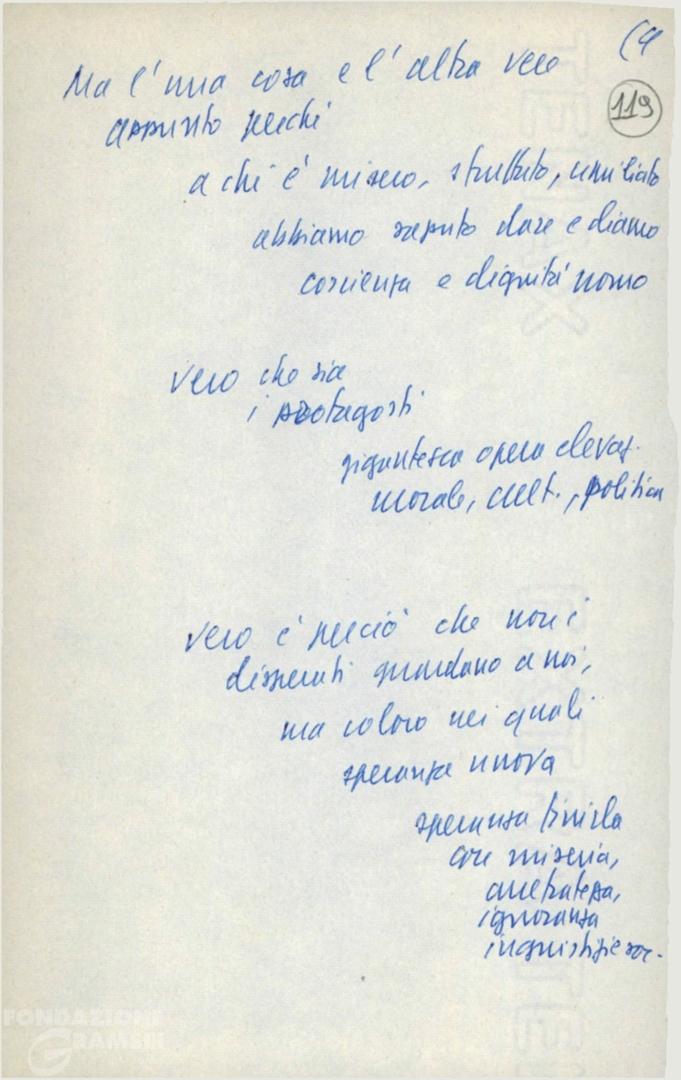 (4
119
Ma l'una cosa e l'altra vere
appunto perché
a chi è misero, sfruttato, umiliato
abbiamo saputo dare e diamo
coscienza e dignità uomo
vero che sia
i protagosti
gigantesca opera elevaz.
morale, cult., politica
vero è perciò che non i
disperati guardano a noi,
ma coloro nei quali
speranza nuova
speranza finirla
con miseria,
arretratezza,
ignoranza
ingiustizie soc.
FONDAZIONE
GRAMSCI